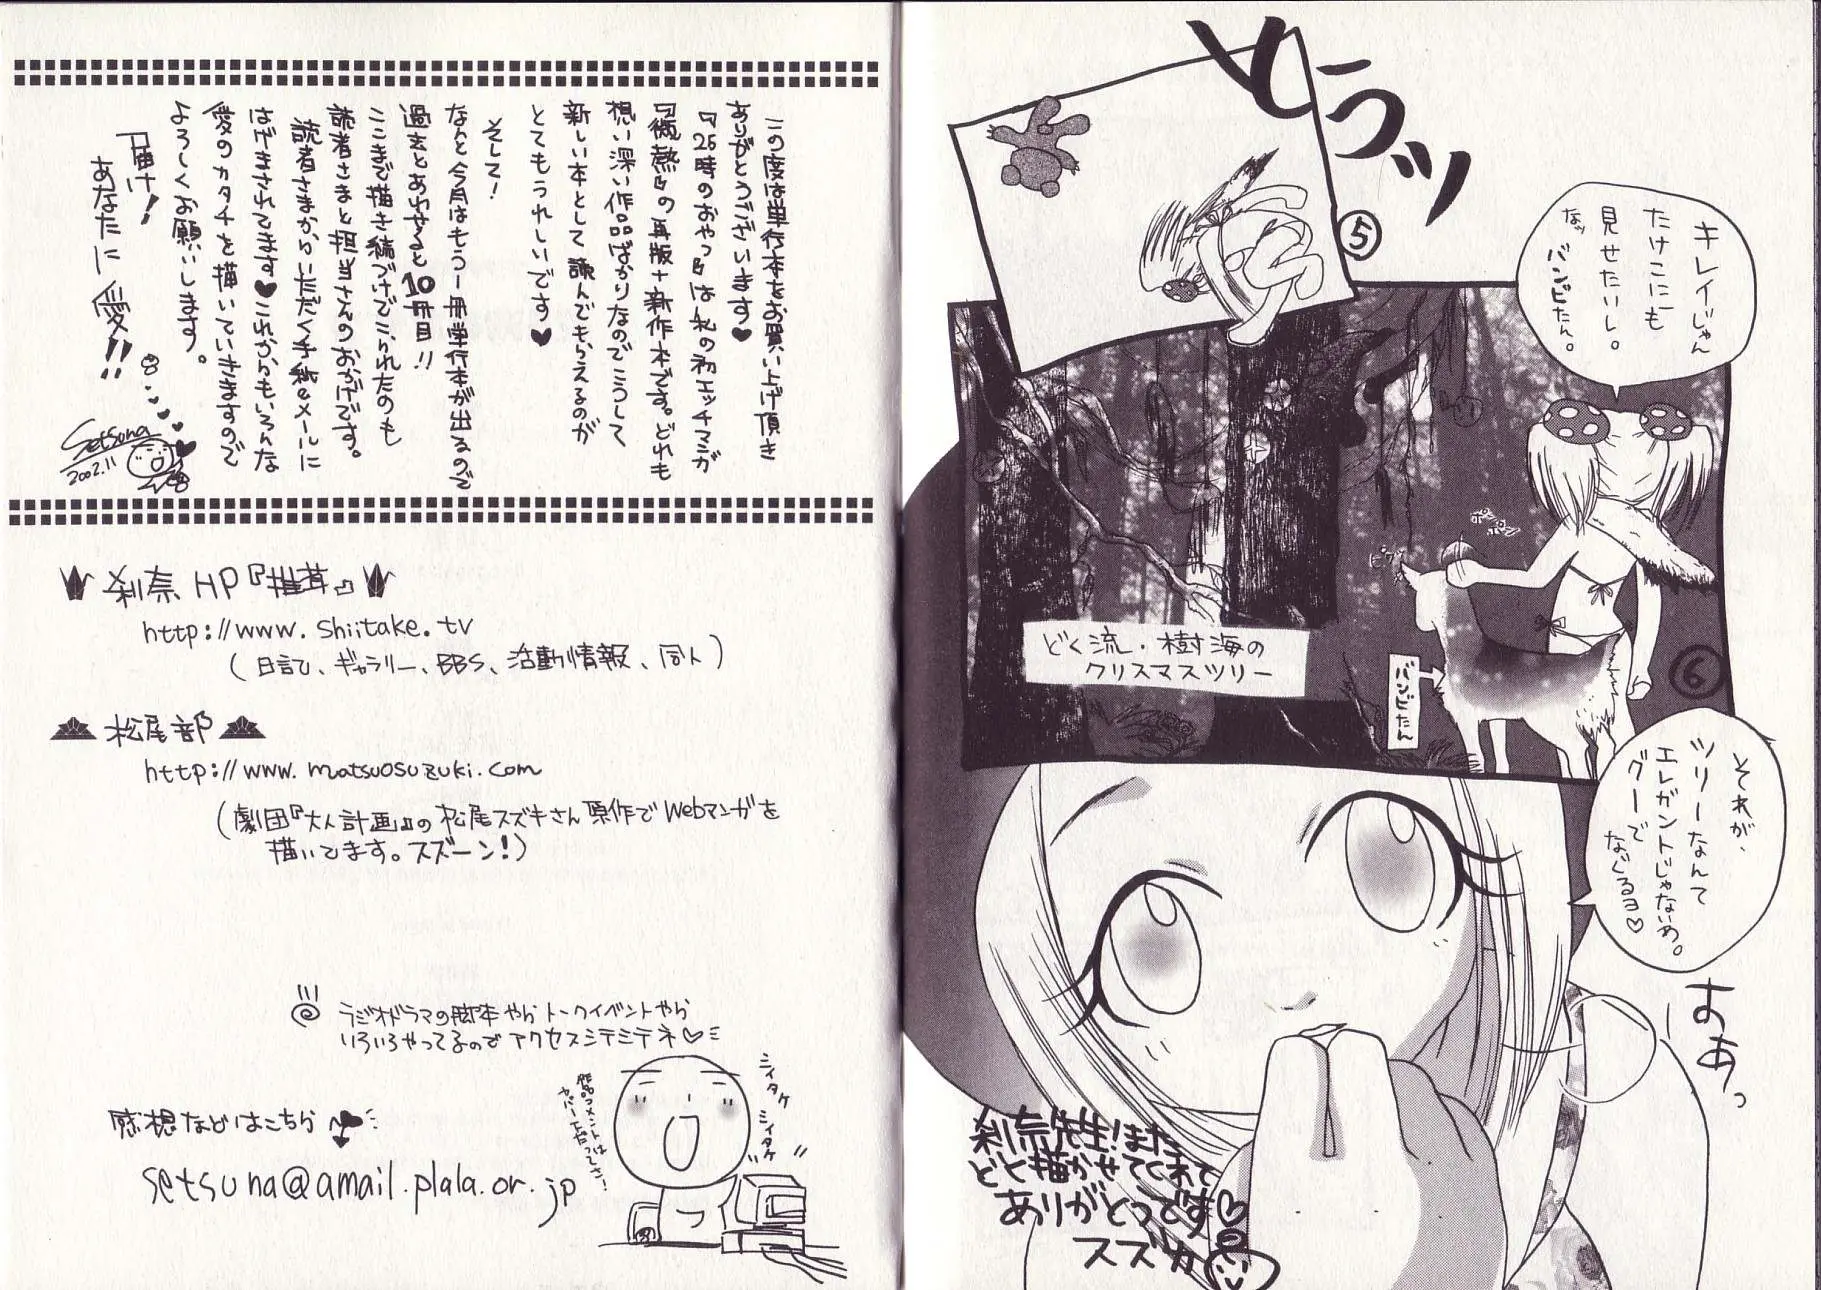 とうッ
⑤
キレイじゃん
たけこにも
見せたいし。
なッ バンビたん。
ポンポン
どく流・樹海の
クリスマスツリー
バンビたん
⑥
それが、
ツリーなんて
エレガントじゃないわ。
グーで
なぐるヨ♡
おあっ
刹奈先生!また
どく描かせてくれて
ありがとうです♡
スズカ
この度は単行本をお買い上げ頂き
ありがとうございます♥
『26時のおやつ』は私の初エッチマンガ
『微熱』の再版+新作本です。どれも
想い深い作品ばかりなのでこうして
新しい本として読んでもらえるのが
とてもうれしいです♥
そして!
なんと今月はもう一冊単行本が出るので
過去とあわせると10冊目!!
ここまで描き続けてこられたのも
読者さまと担当さんのおかげです。
読者さまからいただく手紙やメールに
はげまされてます♥これからもいろんな
愛のカタチを描いていきますので
よろしくお願いします。
届け!
あなたに愛!!
Setsuna
2002.11
刹奈HP『椎茸』
http://www.shiitake.tv
(日記、ギャラリー、BBS、活動情報、同人)
松尾部
http://www.matsuosuzuki.com
(劇団『大人計画』の松尾スズキさん原作でWebマンガを
描いてます。スズーン!)
ラジオドラマの脚本やらトークイベントやら
いろいろやってるのでアクセスシテミテネ♡
感想などはこちら
setsuna@amail.plala.or.jp
シイタケ
シイタケ
作品コメントは
カバー下だってさ!